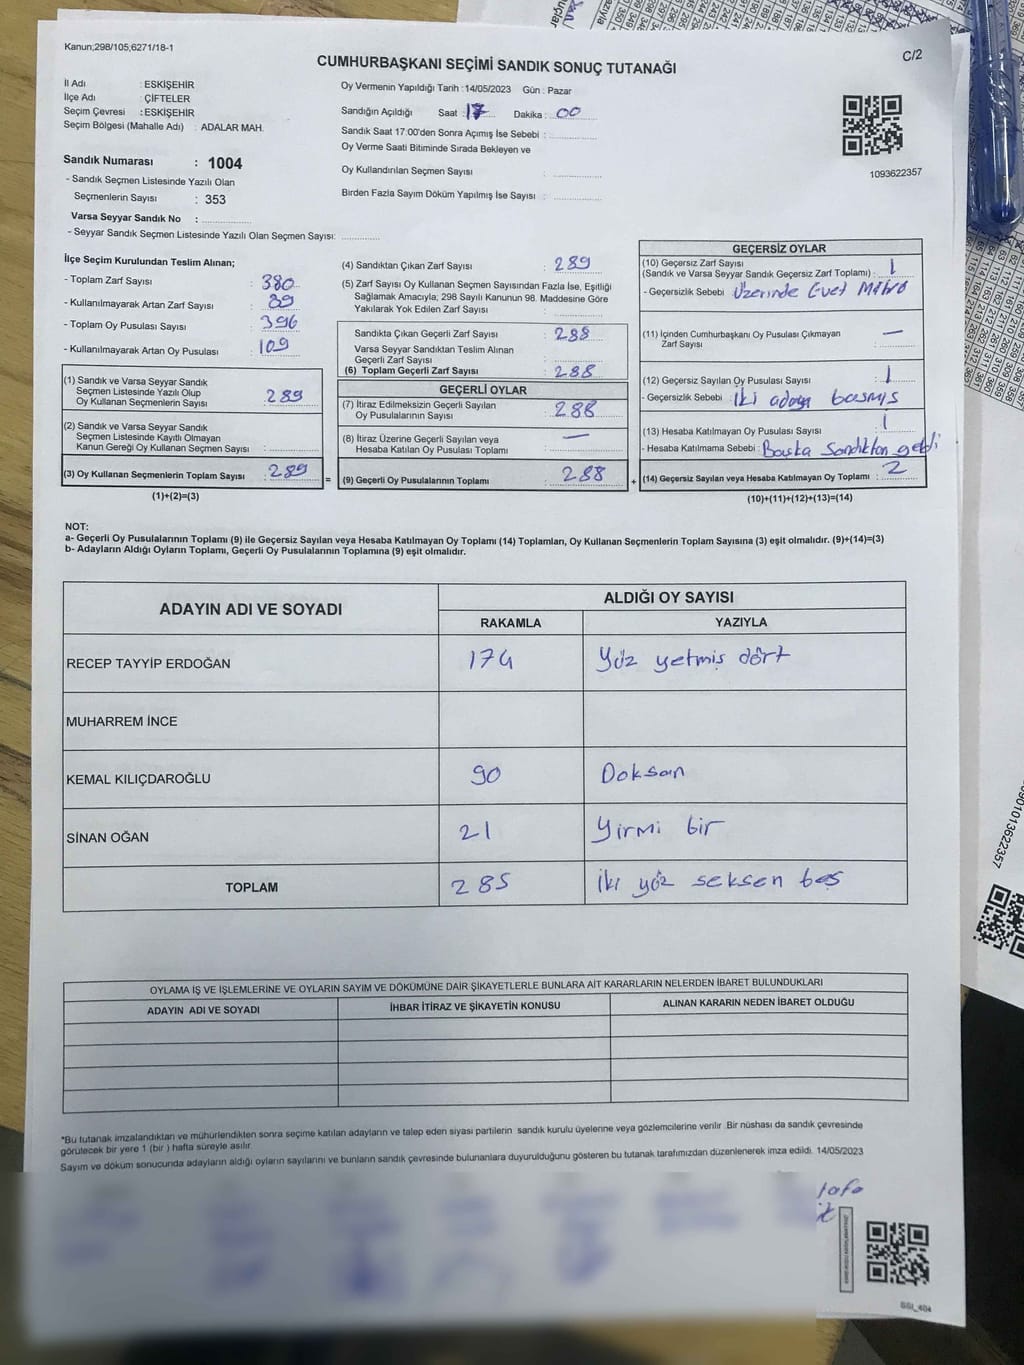 Kanun;298/105;6271/18-1
C/2
CUMHURBAŞKANI SEÇİMİ SANDIK SONUÇ TUTANAĞI
İl Adı : ESKİŞEHİR
İlçe Adı : ÇİFTELER
Seçim Çevresi : ESKİŞEHİR
Seçim Bölgesi (Mahalle Adı) : ADALAR MAH.
Oy Vermenin Yapıldığı Tarih :14/05/2023 Gün : Pazar
Sandığın Açıldığı Saat : 17 Dakika : 00
Sandık Saat 17:00'den Sonra Açımış İse Sebebi :
Oy Verme Saati Bitiminde Sırada Bekleyen ve
Oy Kullandırılan Seçmen Sayısı :
Birden Fazla Sayım Döküm Yapılmış İse Sayısı :
1093622357
Sandık Numarası : 1004
- Sandık Seçmen Listesinde Yazılı Olan
Seçmenlerin Sayısı : 353
Varsa Seyyar Sandık No :
- Seyyar Sandık Seçmen Listesinde Yazılı Olan Seçmen Sayısı:
İlçe Seçim Kurulundan Teslim Alınan;
- Toplam Zarf Sayısı : 380
- Kullanılmayarak Artan Zarf Sayısı : 89
- Toplam Oy Pusulası Sayısı : 396
- Kullanılmayarak Artan Oy Pusulası : 109
(1) Sandık ve Varsa Seyyar Sandık
Seçmen Listesinde Yazılı Olup
Oy Kullanan Seçmenlerin Sayısı : 289
(2) Sandık ve Varsa Seyyar Sandık
Seçmen Listesinde Kayıtlı Olmayan
Kanun Gereği Oy Kullanan Seçmen Sayısı :
(3) Oy Kullanan Seçmenlerin Toplam Sayısı : 289
(1)+(2)=(3)
(4) Sandıktan Çıkan Zarf Sayısı : 289
(5) Zarf Sayısı Oy Kullanan Seçmen Sayısından Fazla İse, Eşitliği
Sağlamak Amacıyla; 298 Sayılı Kanunun 98. Maddesine Göre
Yakılarak Yok Edilen Zarf Sayısı :
Sandıkta Çıkan Geçerli Zarf Sayısı : 288
Varsa Seyyar Sandıktan Teslim Alınan
Geçerli Zarf Sayısı :
(6) Toplam Geçerli Zarf Sayısı : 288
GEÇERLİ OYLAR
(7) İtiraz Edilmeksizin Geçerli Sayılan
Oy Pusulalarının Sayısı : 288
(8) İtiraz Üzerine Geçerli Sayılan veya
Hesaba Katılan Oy Pusulası Toplamı : —
= (9) Geçerli Oy Pusulalarının Toplamı : 288 +
GEÇERSİZ OYLAR
(10) Geçersiz Zarf Sayısı
(Sandık ve Varsa Seyyar Sandık Geçersiz Zarf Toplamı) : 1
- Geçersizlik Sebebi : Üzerinde Evet Mührü
(11) İçinden Cumhurbaşkanı Oy Pusulası Çıkmayan
Zarf Sayısı : —
(12) Geçersiz Sayılan Oy Pusulası Sayısı : 1
- Geçersizlik Sebebi : İki adaya basmış
(13) Hesaba Katılmayan Oy Pusulası Sayısı : 1
- Hesaba Katılmama Sebebi : Başka Sandıktan geldi
(14) Geçersiz Sayılan veya Hesaba Katılmayan Oy Toplamı : 2
(10)+(11)+(12)+(13)=(14)
NOT:
a- Geçerli Oy Pusulalarının Toplamı (9) ile Geçersiz Sayılan veya Hesaba Katılmayan Oy Toplamı (14) Toplamları, Oy Kullanan Seçmenlerin Toplam Sayısına (3) eşit olmalıdır. (9)+(14)=(3)
b- Adayların Aldığı Oyların Toplamı, Geçerli Oy Pusulalarının Toplamına (9) eşit olmalıdır.
ADAYIN ADI VE SOYADI
ALDIĞI OY SAYISI
RAKAMLA YAZIYLA
RECEP TAYYİP ERDOĞAN 174 Yüz yetmiş dört
MUHARREM İNCE
KEMAL KILIÇDAROĞLU 90 Doksan
SİNAN OĞAN 21 Yirmi bir
TOPLAM 285 İki yüz seksen beş
OYLAMA İŞ VE İŞLEMLERİNE VE OYLARIN SAYIM VE DÖKÜMÜNE DAİR ŞİKAYETLERLE BUNLARA AİT KARARLARIN NELERDEN İBARET BULUNDUKLARI
ADAYIN ADI VE SOYADI İHBAR İTİRAZ VE ŞİKAYETİN KONUSU ALINAN KARARIN NEDEN İBARET OLDUĞU
*Bu tutanak imzalandıktan ve mühürlendikten sonra seçime katılan adayların ve talep eden siyasi partilerin sandık kurulu üyelerine veya gözlemcilerine verilir .Bir nüshası da sandık çevresinde
görülecek bir yere 1 (bir ) hafta süreyle asılır.
Sayım ve döküm sonucunda adayların aldığı oyların sayılarını ve bunların sandık çevresinde bulunanlara duyurulduğunu gösteren bu tutanak tarafımızdan düzenlenerek imza edildi. 14/05/2023